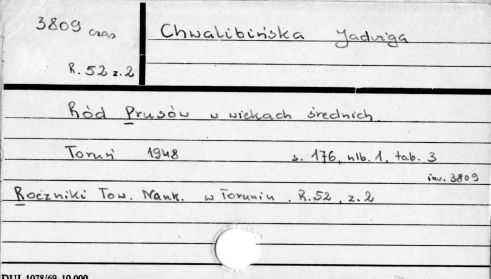 3809 czas
Chwalibińska Jadwiga
R. 52 z. 2
Ród Prusów w wiekach średnich.
Toruń 1948 s. 176, nlb. 1, tab. 3
inw. 3809
Roczniki Tow. Nauk. w Toruniu. R. 52, z. 2
DUJ. 1078/69 10.000